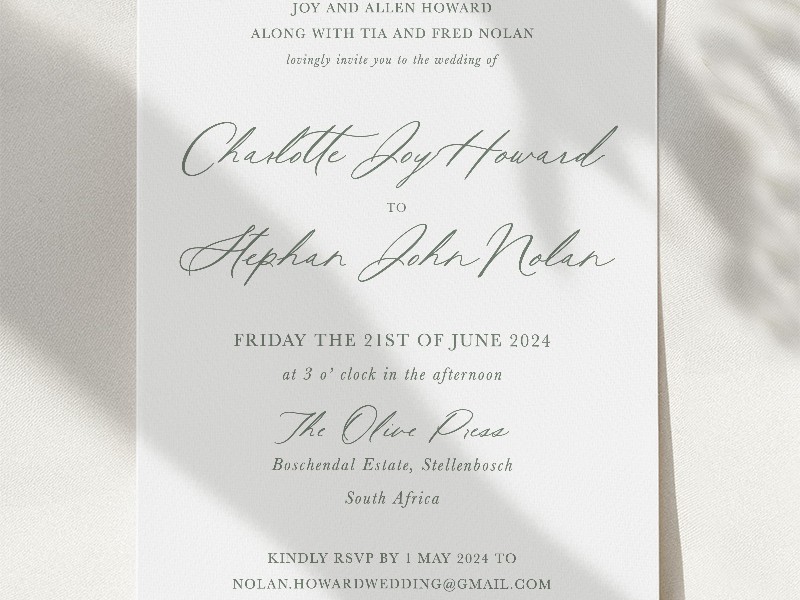 JOY AND ALLEN HOWARD
ALONG WITH TIA AND FRED NOLAN
lovingly invite you to the wedding of
Charlotte Joy Howard
TO
Stephan John Nolan
FRIDAY THE 21ST OF JUNE 2024
at 3 o' clock in the afternoon
The Olive Press
Boschendal Estate, Stellenbosch
South Africa
KINDLY RSVP BY 1 MAY 2024 TO
NOLAN.HOWARDWEDDING@GMAIL.COM